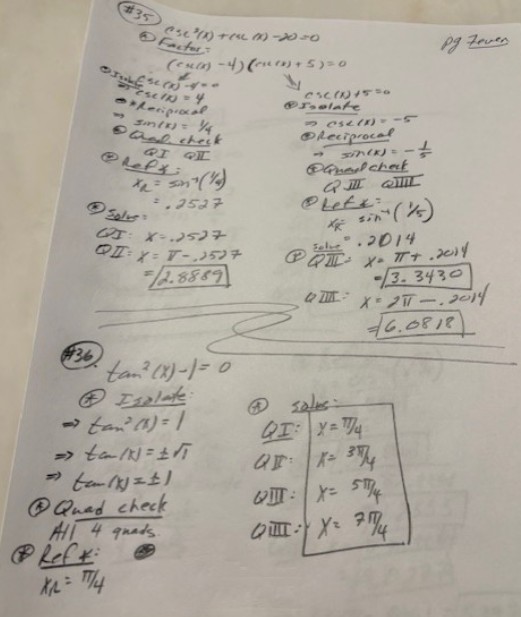 #35
csc²(x) + csc(x) - 20 = 0
pg 7even
Factor:
(csc(x) - 4)(csc(x) + 5) = 0
csc(x) - 4 = 0
⇒ csc(x) = 4
*Reciprocal
⇒ sin(x) = 1/4
Quad check
QI QII
Ref ∡:
x_R = sin⁻¹(1/4)
= .2527
Solve:
QI: x = .2527
QII: x = π - .2527
= 2.8889
csc(x) + 5 = 0
Isolate
⇒ csc(x) = -5
Reciprocal
⇒ sin(x) = -1/5
Quad check
QIII QIIII
Ref ∡:
x_R = sin⁻¹(1/5)
= .2014
Solve
QIII: x = π + .2014
= 3.3430
QIIII: x = 2π - .2014
= 6.0818
#36.
tan²(x) - 1 = 0
Isolate:
⇒ tan²(x) = 1
⇒ tan(x) = ±√1
⇒ tan(x) = ±1
Quad check
All 4 quads.
Ref ∡:
x_R = π/4
Solve:
QI: x = π/4
QII: x = 3π/4
QIII: x = 5π/4
QIIII: x = 7π/4